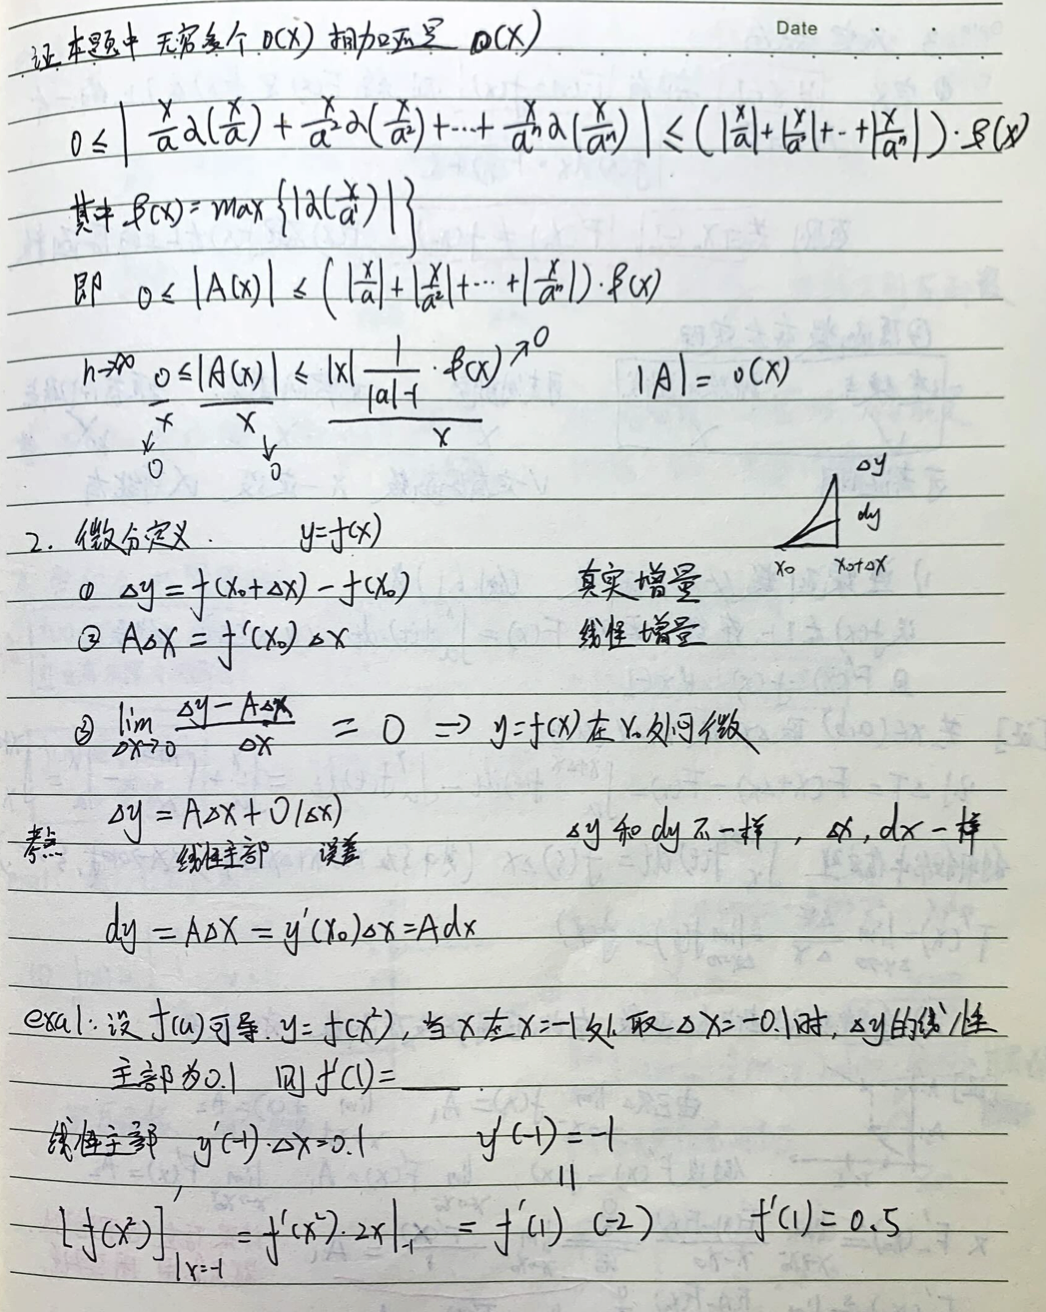 Date
证本题中 无穷多个 o(x) 相加亦是 o(x)
0 ≤ | x/a α(x/a) + x/a² α(x/a²) + ··· + x/aⁿ α(x/aⁿ) | ≤ ( |x/a| + |x/a²| + ·· + |x/aⁿ| ) · β(x)
其中 β(x) = max { |α(x/aⁱ)| }
即 0 ≤ |A(x)| ≤ ( |x/a| + |x/a²| + ··· + |x/aⁿ| ) · β(x)
n→∞ 0/x ≤ |A(x)|/x ≤ |x| 1/(|a|-1) · β(x)↗0 / x |A| = o(x)
↓0 ↓0
Δy
dy
x₀ x₀+Δx
2. 微分定义. y=f(x)
① Δy = f(x₀+Δx) - f(x₀) 真实增量
② AΔx = f'(x₀) Δx 线性增量
③ lim Δx→0 (Δy - AΔx)/Δx = 0 ⇒ y=f(x) 在 x₀ 处可微
Δy = AΔx + o(Δx) Δy 和 dy 不一样, Δx, dx 一样
考点 线性主部 误差
dy = AΔx = y'(x₀)Δx = Adx
exa1: 设 f(u) 可导. y=f(x²), 当 x 在 x=-1 处. 取 Δx=-0.1 时, Δy 的线性
主部为 0.1 则 f'(1)=____
线性主部 y'(-1)·Δx=0.1 y'(-1) = -1
||
[f(x²)]' |x=-1 = f'(x²)·2x |-1 = f'(1) (-2) f'(1) = 0.5